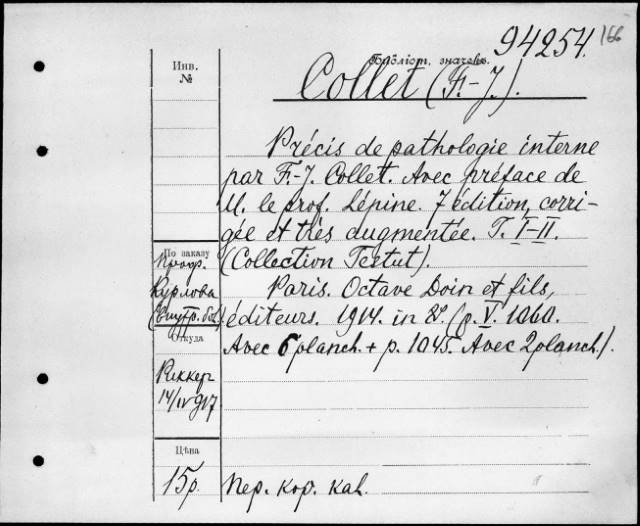 94254. 166
Библіот. значекъ.
Инв.
№
Collet (F.-J.).
Précis de pathologie interne
par F.-J. Collet. Avec préface de
M. le prof. Lépine. 7 édition, corri-
gée et très augmentée. T. I-II.
(Collection Testut).
Paris. Octave Doin et fils,
éditeurs. 1914. in 8º. (p. V. 1060.
Avec 6 planch. + p. 1045. Avec 2 planch.).
По заказу
Проф.
Курлова
(Внутр. бол.)
Откуда
Риккер
14/IV 917
Цѣна
15р.
Пер. кор. каl.